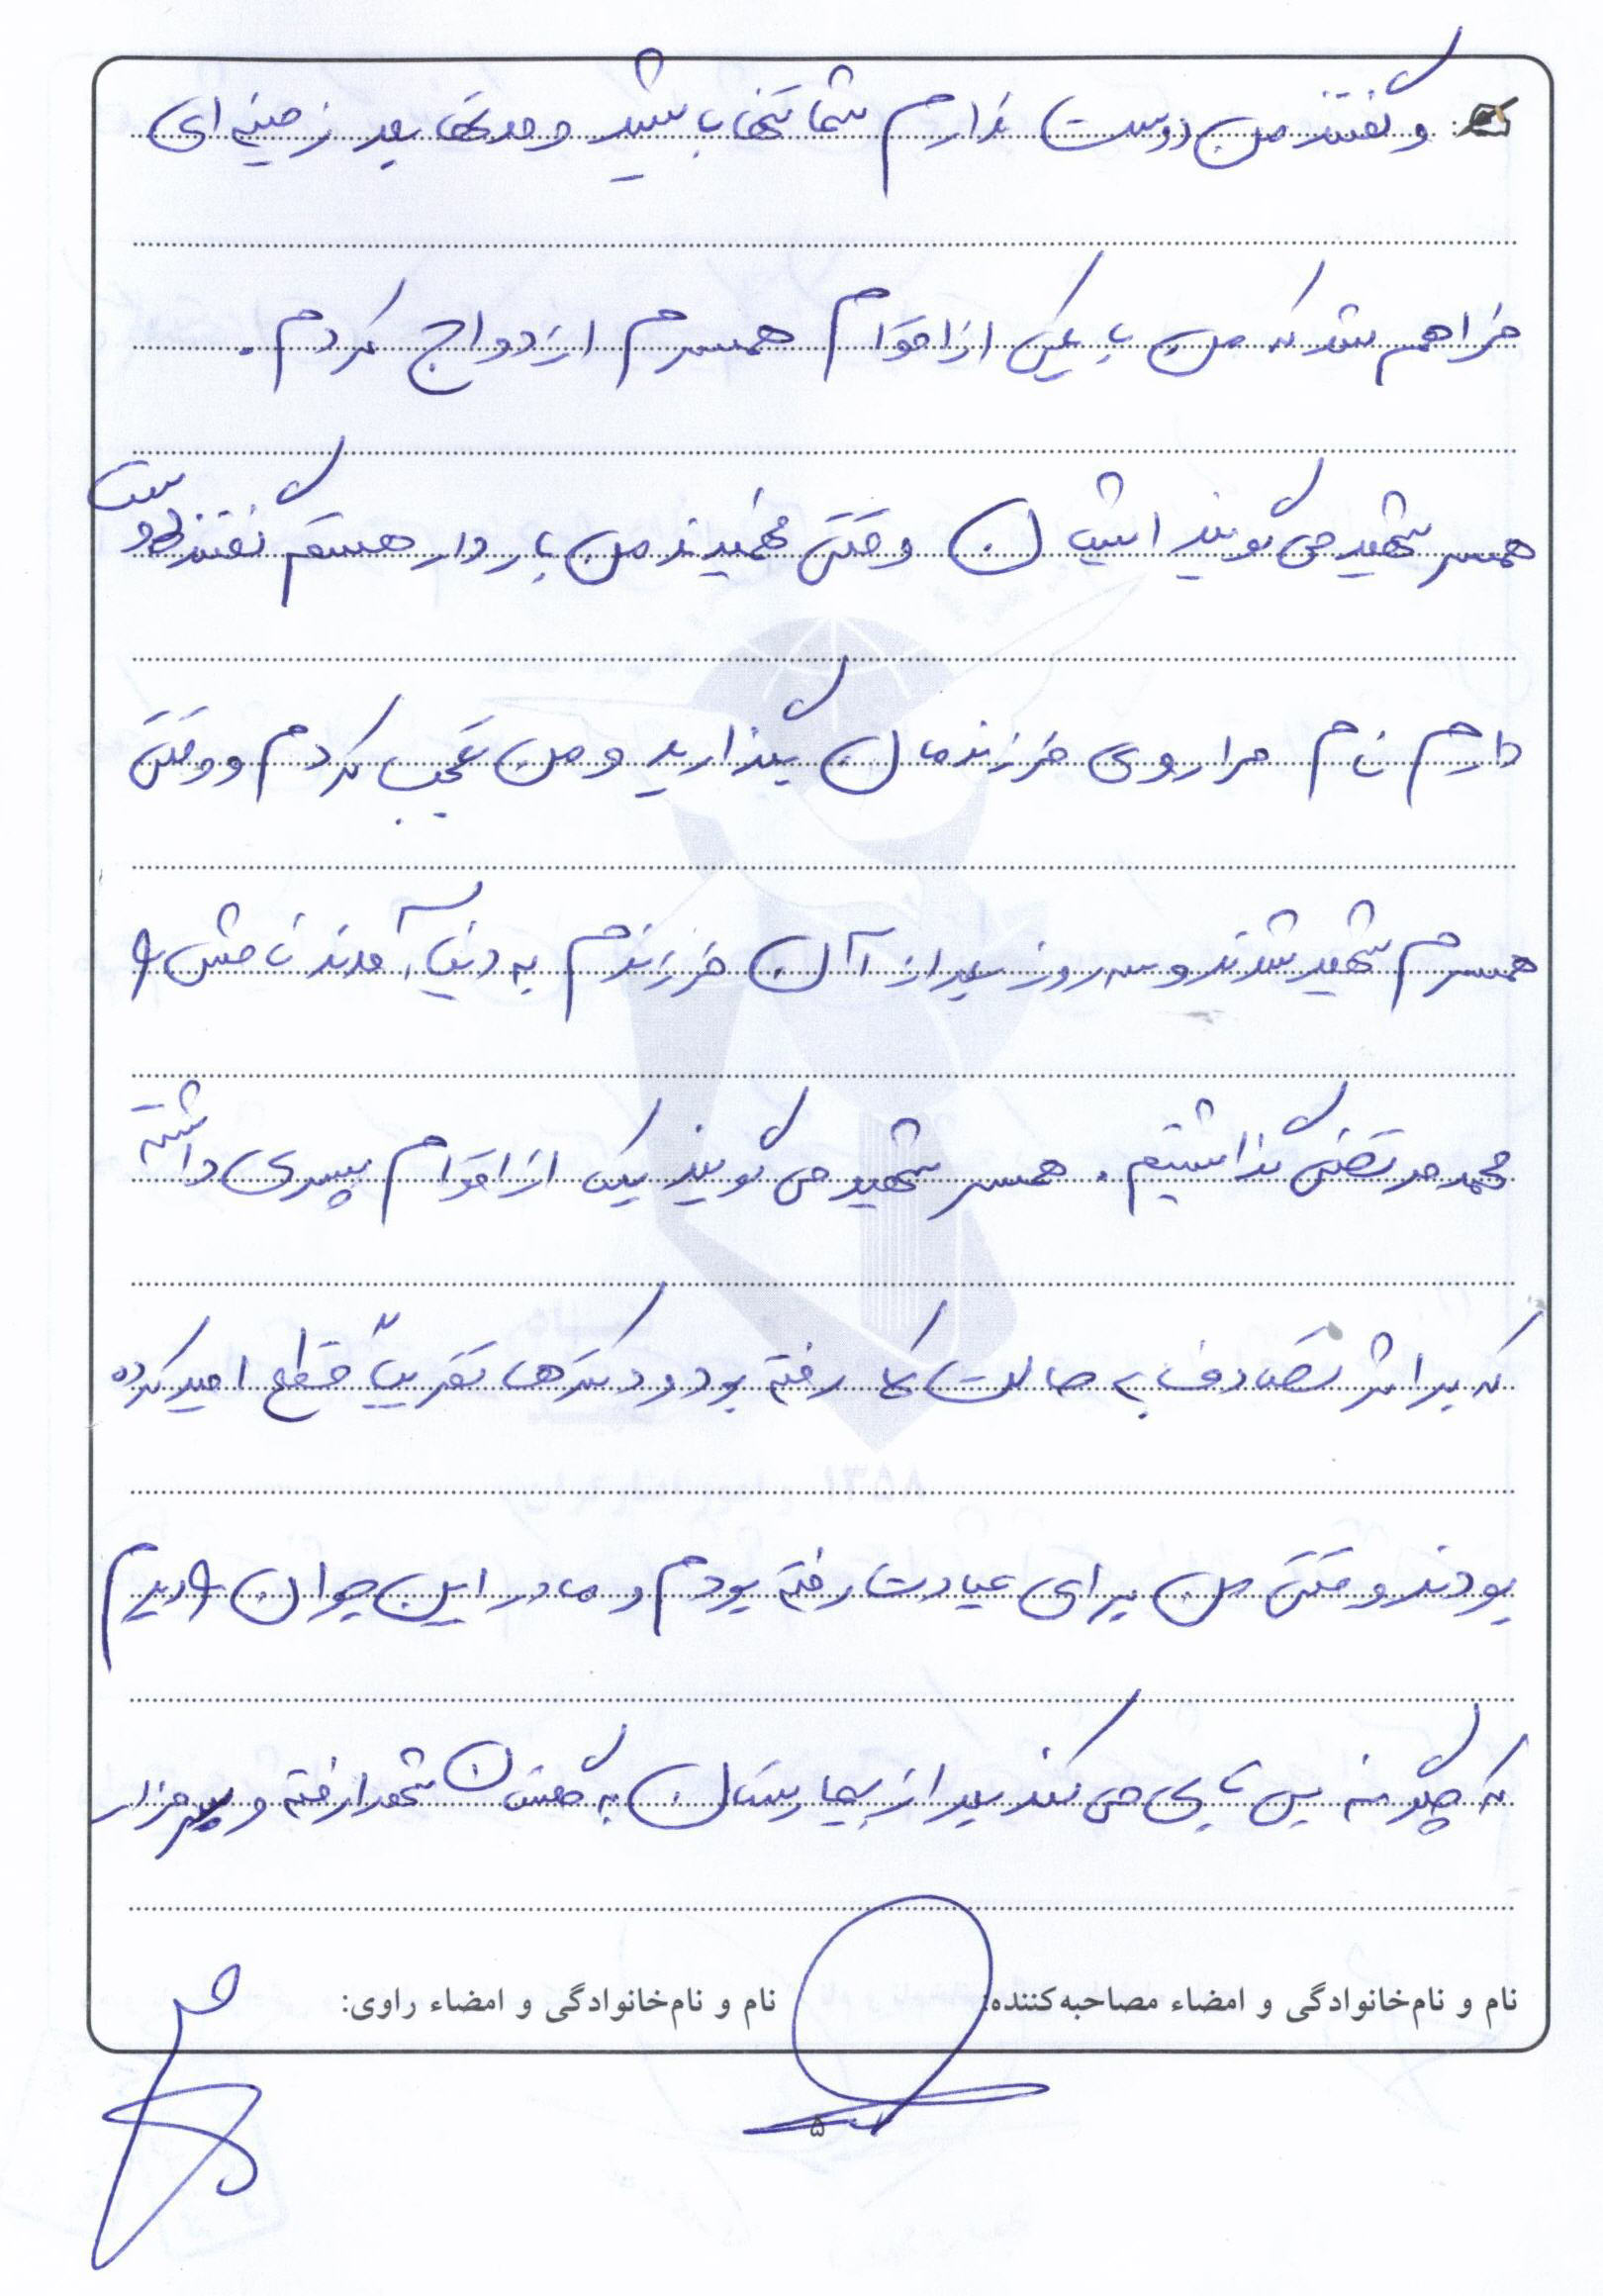 و گفتند من دوست ندارم شما تنها باشید و مدتها بعد زمینه ای
فراهم شد که من با یکی از اقوام همسرم ازدواج کردم .
همسر شهید می گویند ایشان وقتی فهمیدند من باردار هستم گفتند دوست
دارم نام مرا روی فرزندمان بگذارید و من تعجب کردم و وقتی
همسرم شهید شدند و سه روز بعد از آن فرزندم به دنیا آمدند نامش را
محمد مرتضی گذاشتیم . همسر شهید می گویند یکی از اقوام پسری داشته
که بر اثر تصادف به حالت کما رفته بود و دکترها تقریباً قطع امید کرده
بودند وقتی من برای عیادت رفته بودم و مادر این جوان را دیدم
که چگونه بی تابی می کند بعد از بیمارستان به گلستان شهدا رفته و سر مزار
نام و نام‌خانوادگی و امضاء مصاحبه‌کننده:
نام و نام‌خانوادگی و امضاء راوی:
۵